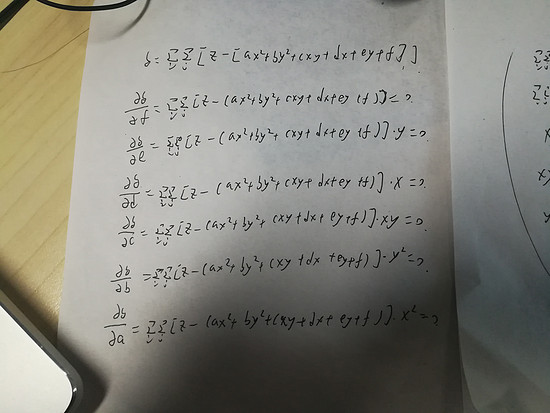 b = ΣΣ [z - [ax²+by²+cxy+dx+ey+f]]
∂b/∂f = ΣΣ [z - (ax²+by²+cxy+dx+ey+f)] = 0
∂b/∂e = ΣΣ [z - (ax²+by²+cxy+dx+ey+f)]·y = 0
∂b/∂d = ΣΣ [z - (ax²+by²+cxy+dx+ey+f)]·x = 0
∂b/∂c = ΣΣ [z - (ax²+by²+cxy+dx+ey+f)]·xy = 0
∂b/∂b = ΣΣ [z - (ax²+by²+cxy+dx+ey+f)]·y² = 0
∂b/∂a = ΣΣ [z - (ax²+by²+cxy+dx+ey+f)]·x² = 0